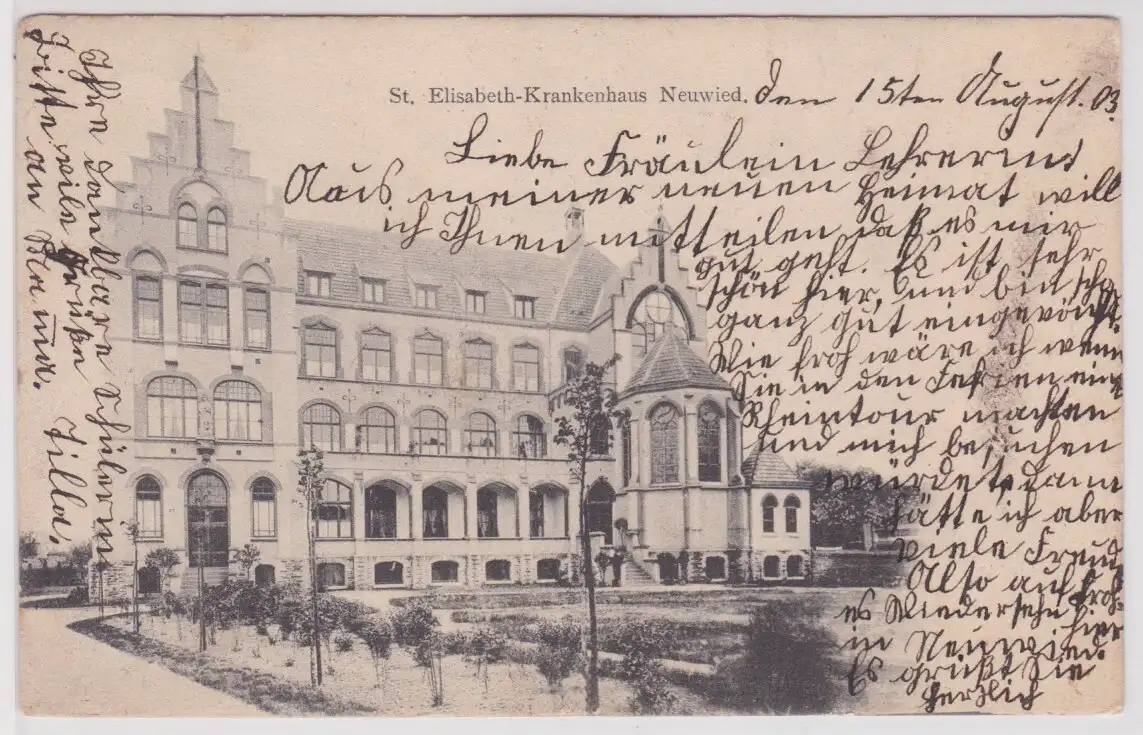 St. Elisabeth-Krankenhaus Neuwied.
den 15ten August. 03.
Liebe Fräulein Lehrerin!
Aus meiner neuen Heimat will
ich Ihnen mitteilen, daß es mir
gut geht. Es ist sehr
schön hier, und bin schon
ganz gut eingewöhnt.
Wie froh wäre ich wenn
Sie in den Ferien eine
Rheintour machten
und mich besuchen
würdet, dann
hätte ich aber
viele Freud
Also auf froh-
es Wiedersehn hier
in Neuwied.
Es grüßt Sie
herzlich
Ihre dankbare Schülerin
Bitte viele Grüße
an
Zilla.